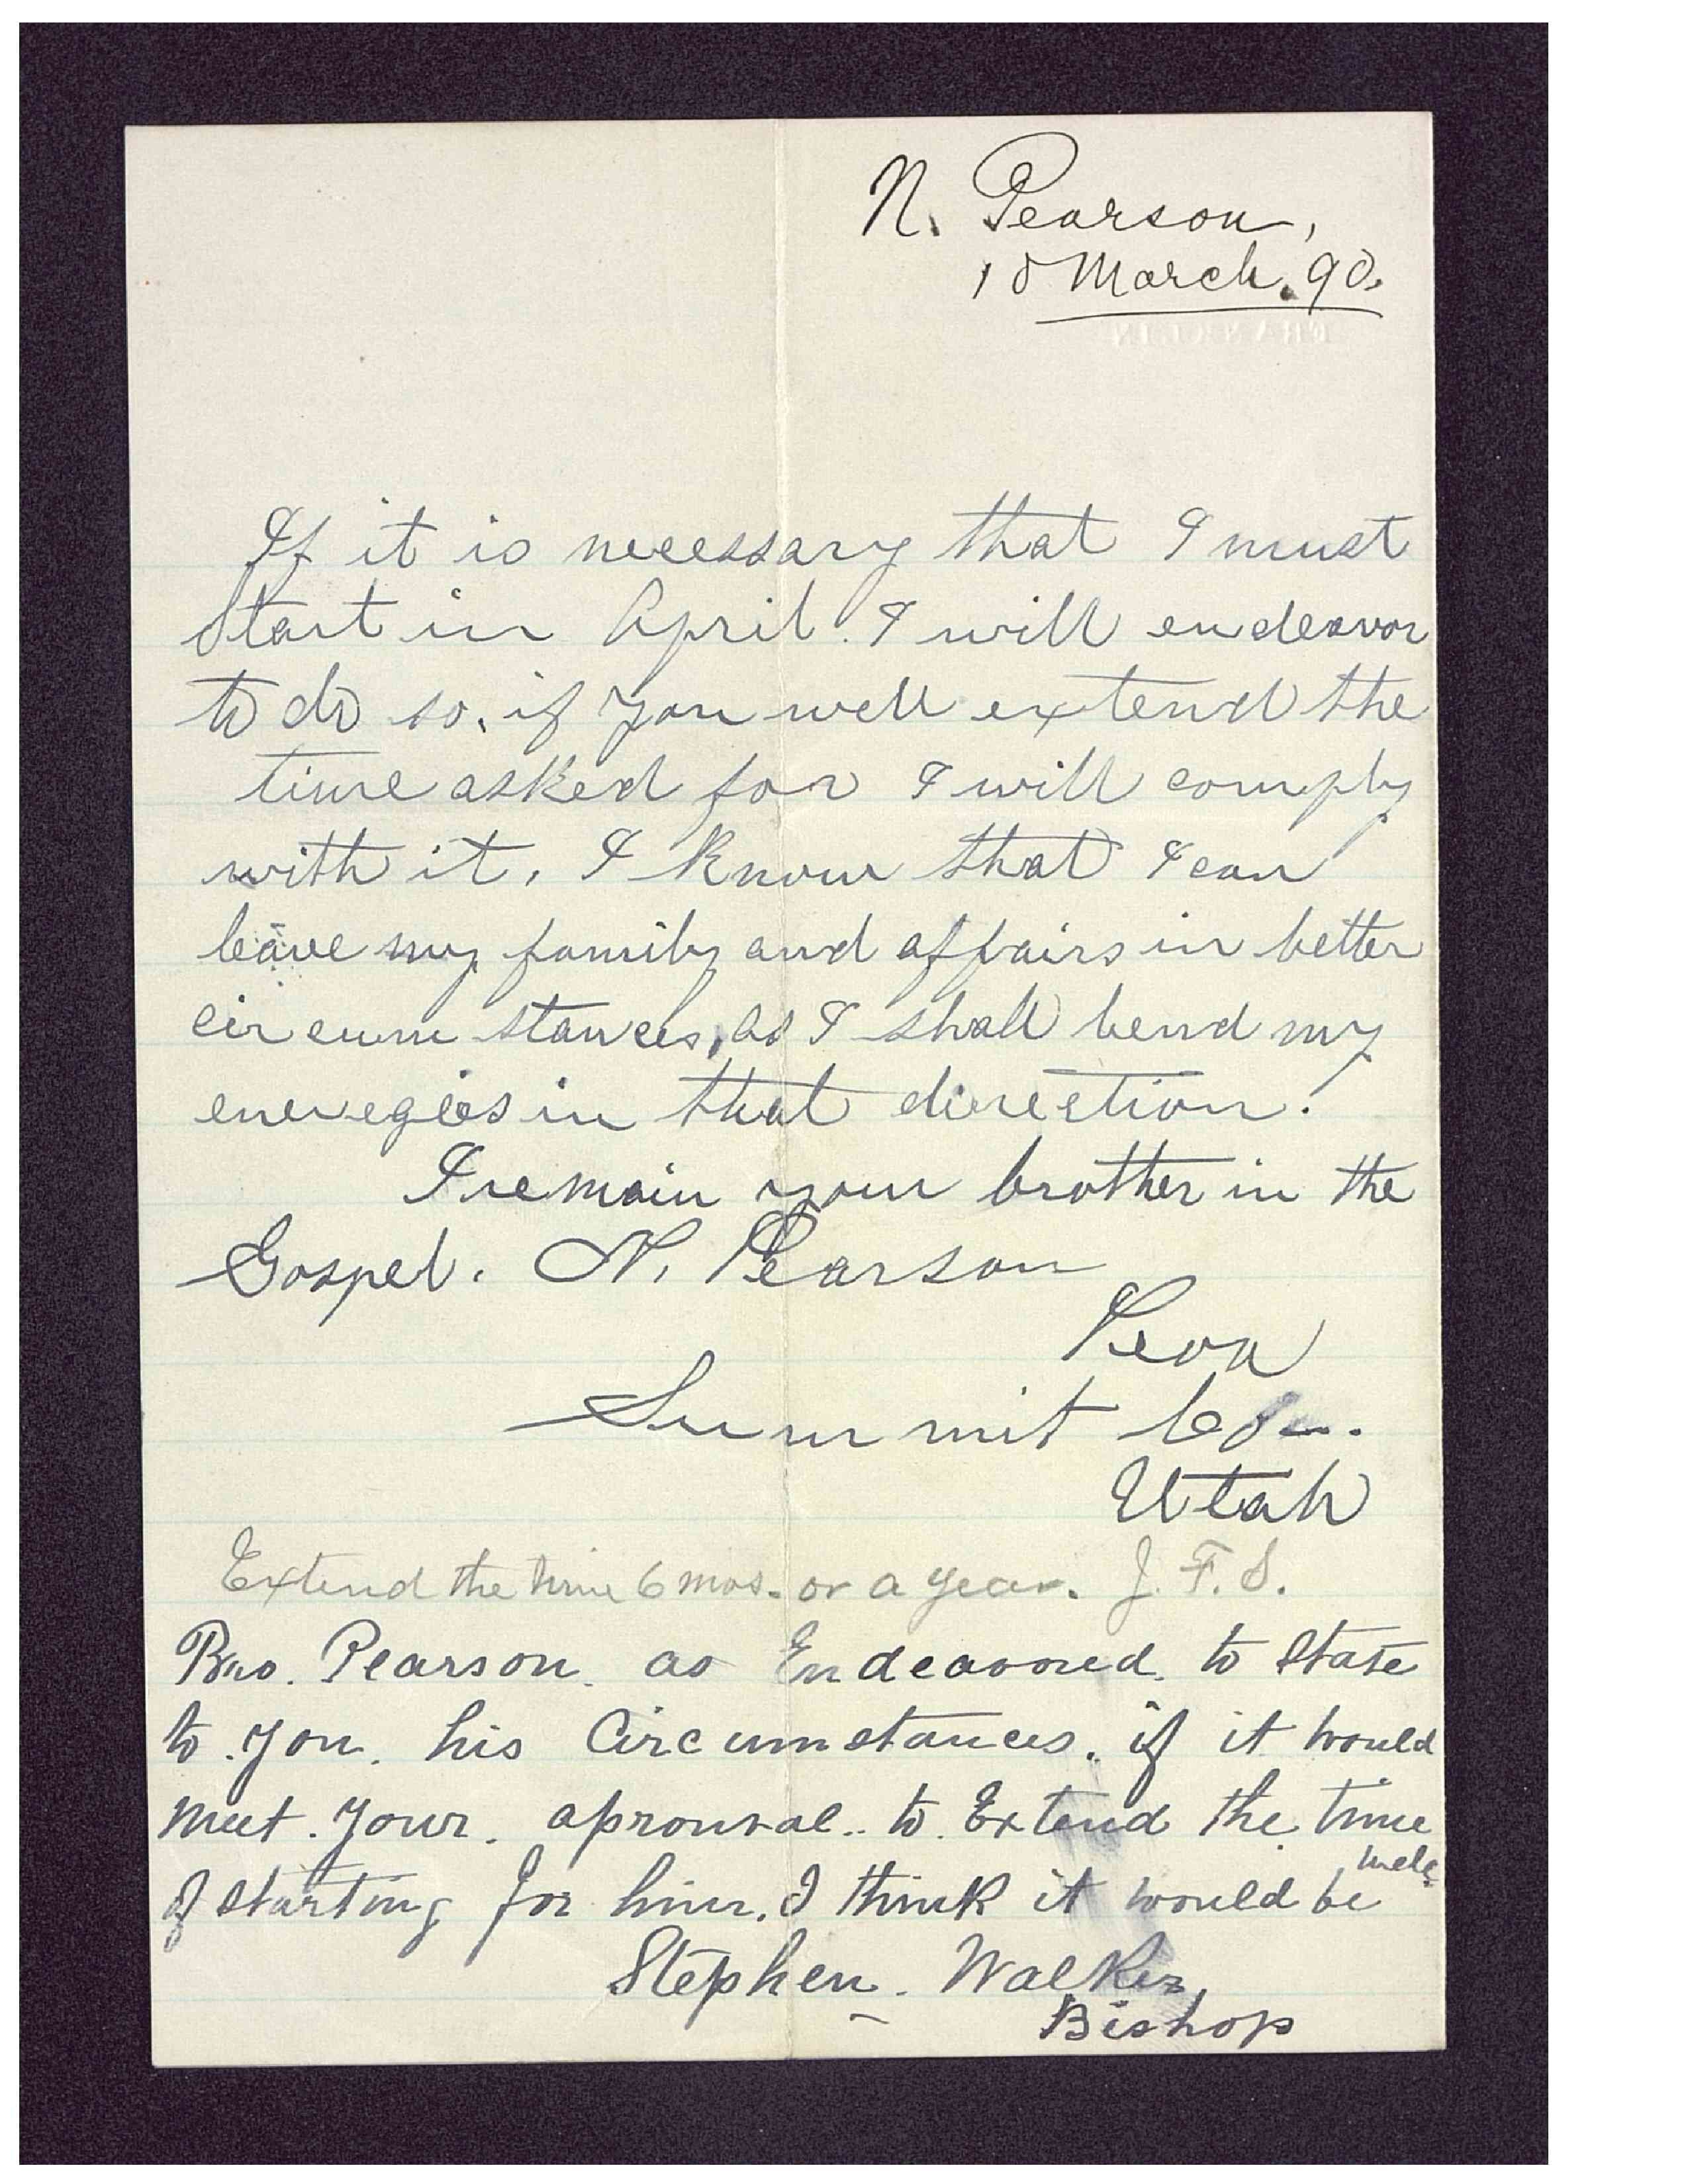 N. Pearson,
10 March. 90.
If it is necessary that I must
Start in April. I will endeavor
to do so. if you well extend the
time asked for I will comply
with it. I know that I can
leave my family and affairs in better
circumstances, as I shall bend my
energies in that direction.
I remain your brother in the
Gospel. N. Pearson
Peoa
Summit Co.
Utah
Extend the time 6 mos. or a year. J. F. S.
Bro. Pearson. as Endeavored. to State
to. you. his Circumstances. if it would
meet. your. aprouval.. to. Extend the time
of starting for him. I think it would be well.
Stephen. Walker,
Bishop